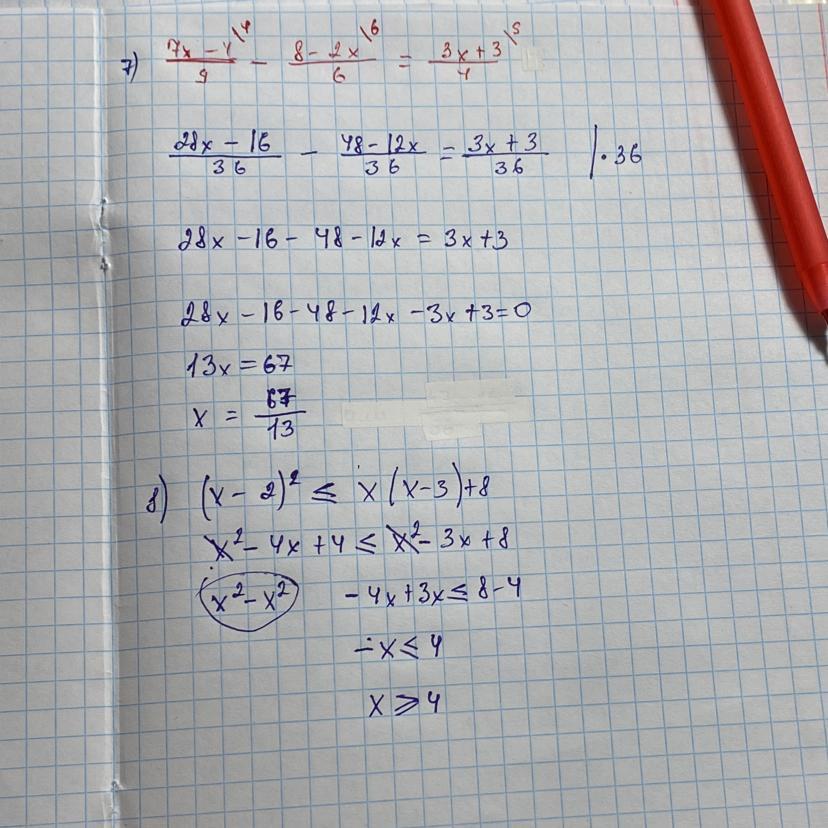 7) \frac{7x-4}{9}^{\4} - \frac{8-2x}{6}^{\6} = \frac{3x+3}{4}^{\5}
\frac{28x-16}{36} - \frac{48-12x}{36} = \frac{3x+3}{36} | \cdot 36
28x - 16 - 48 - 12x = 3x + 3
28x - 16 - 48 - 12x - 3x + 3 = 0
13x = 67
x = \frac{67}{13}
8) (x - 2)² ≤ x(x-3)+8
x² - 4x + 4 ≤ x² - 3x + 8
x² - x² - 4x + 3x ≤ 8 - 4
-x ≤ 4
x ⩾ 4